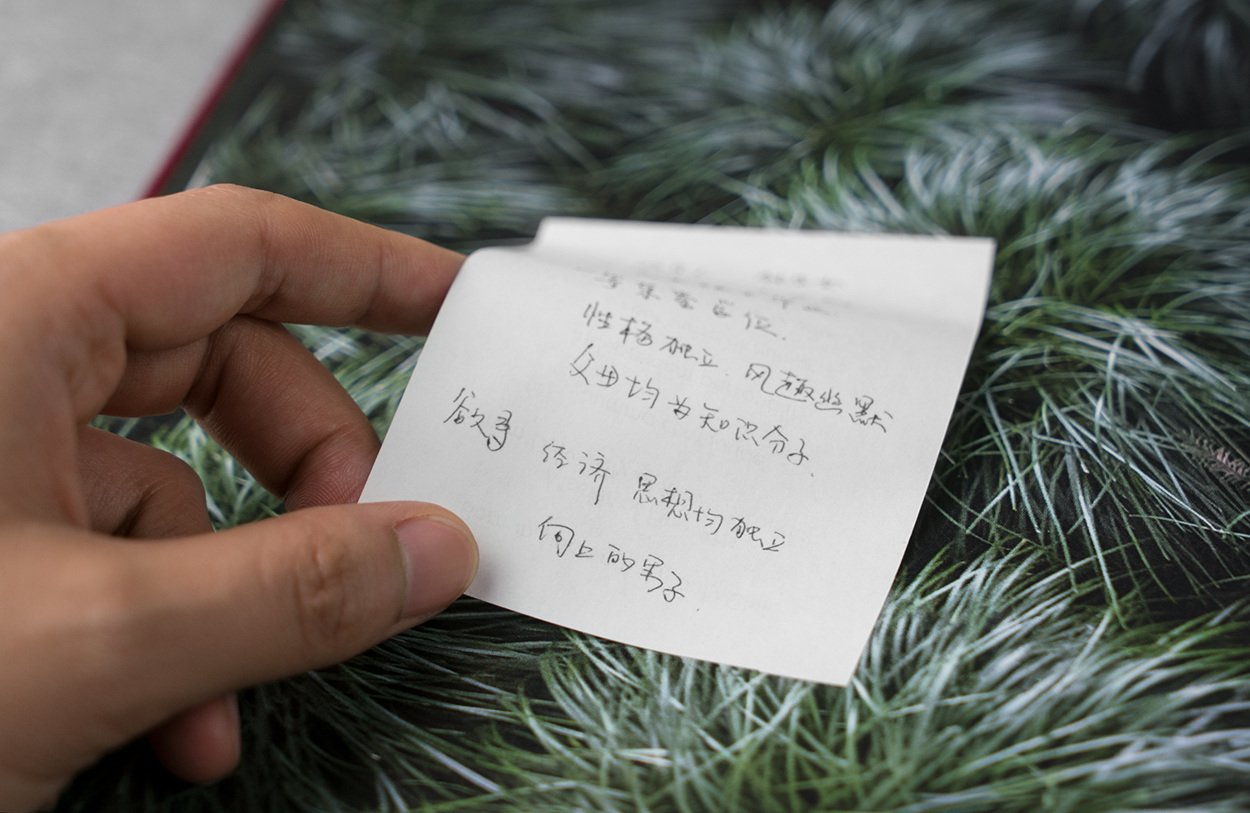 性格独立. 风趣幽默
父母均为知识分子.
欲寻 经济 思想均独立
向上的男子.